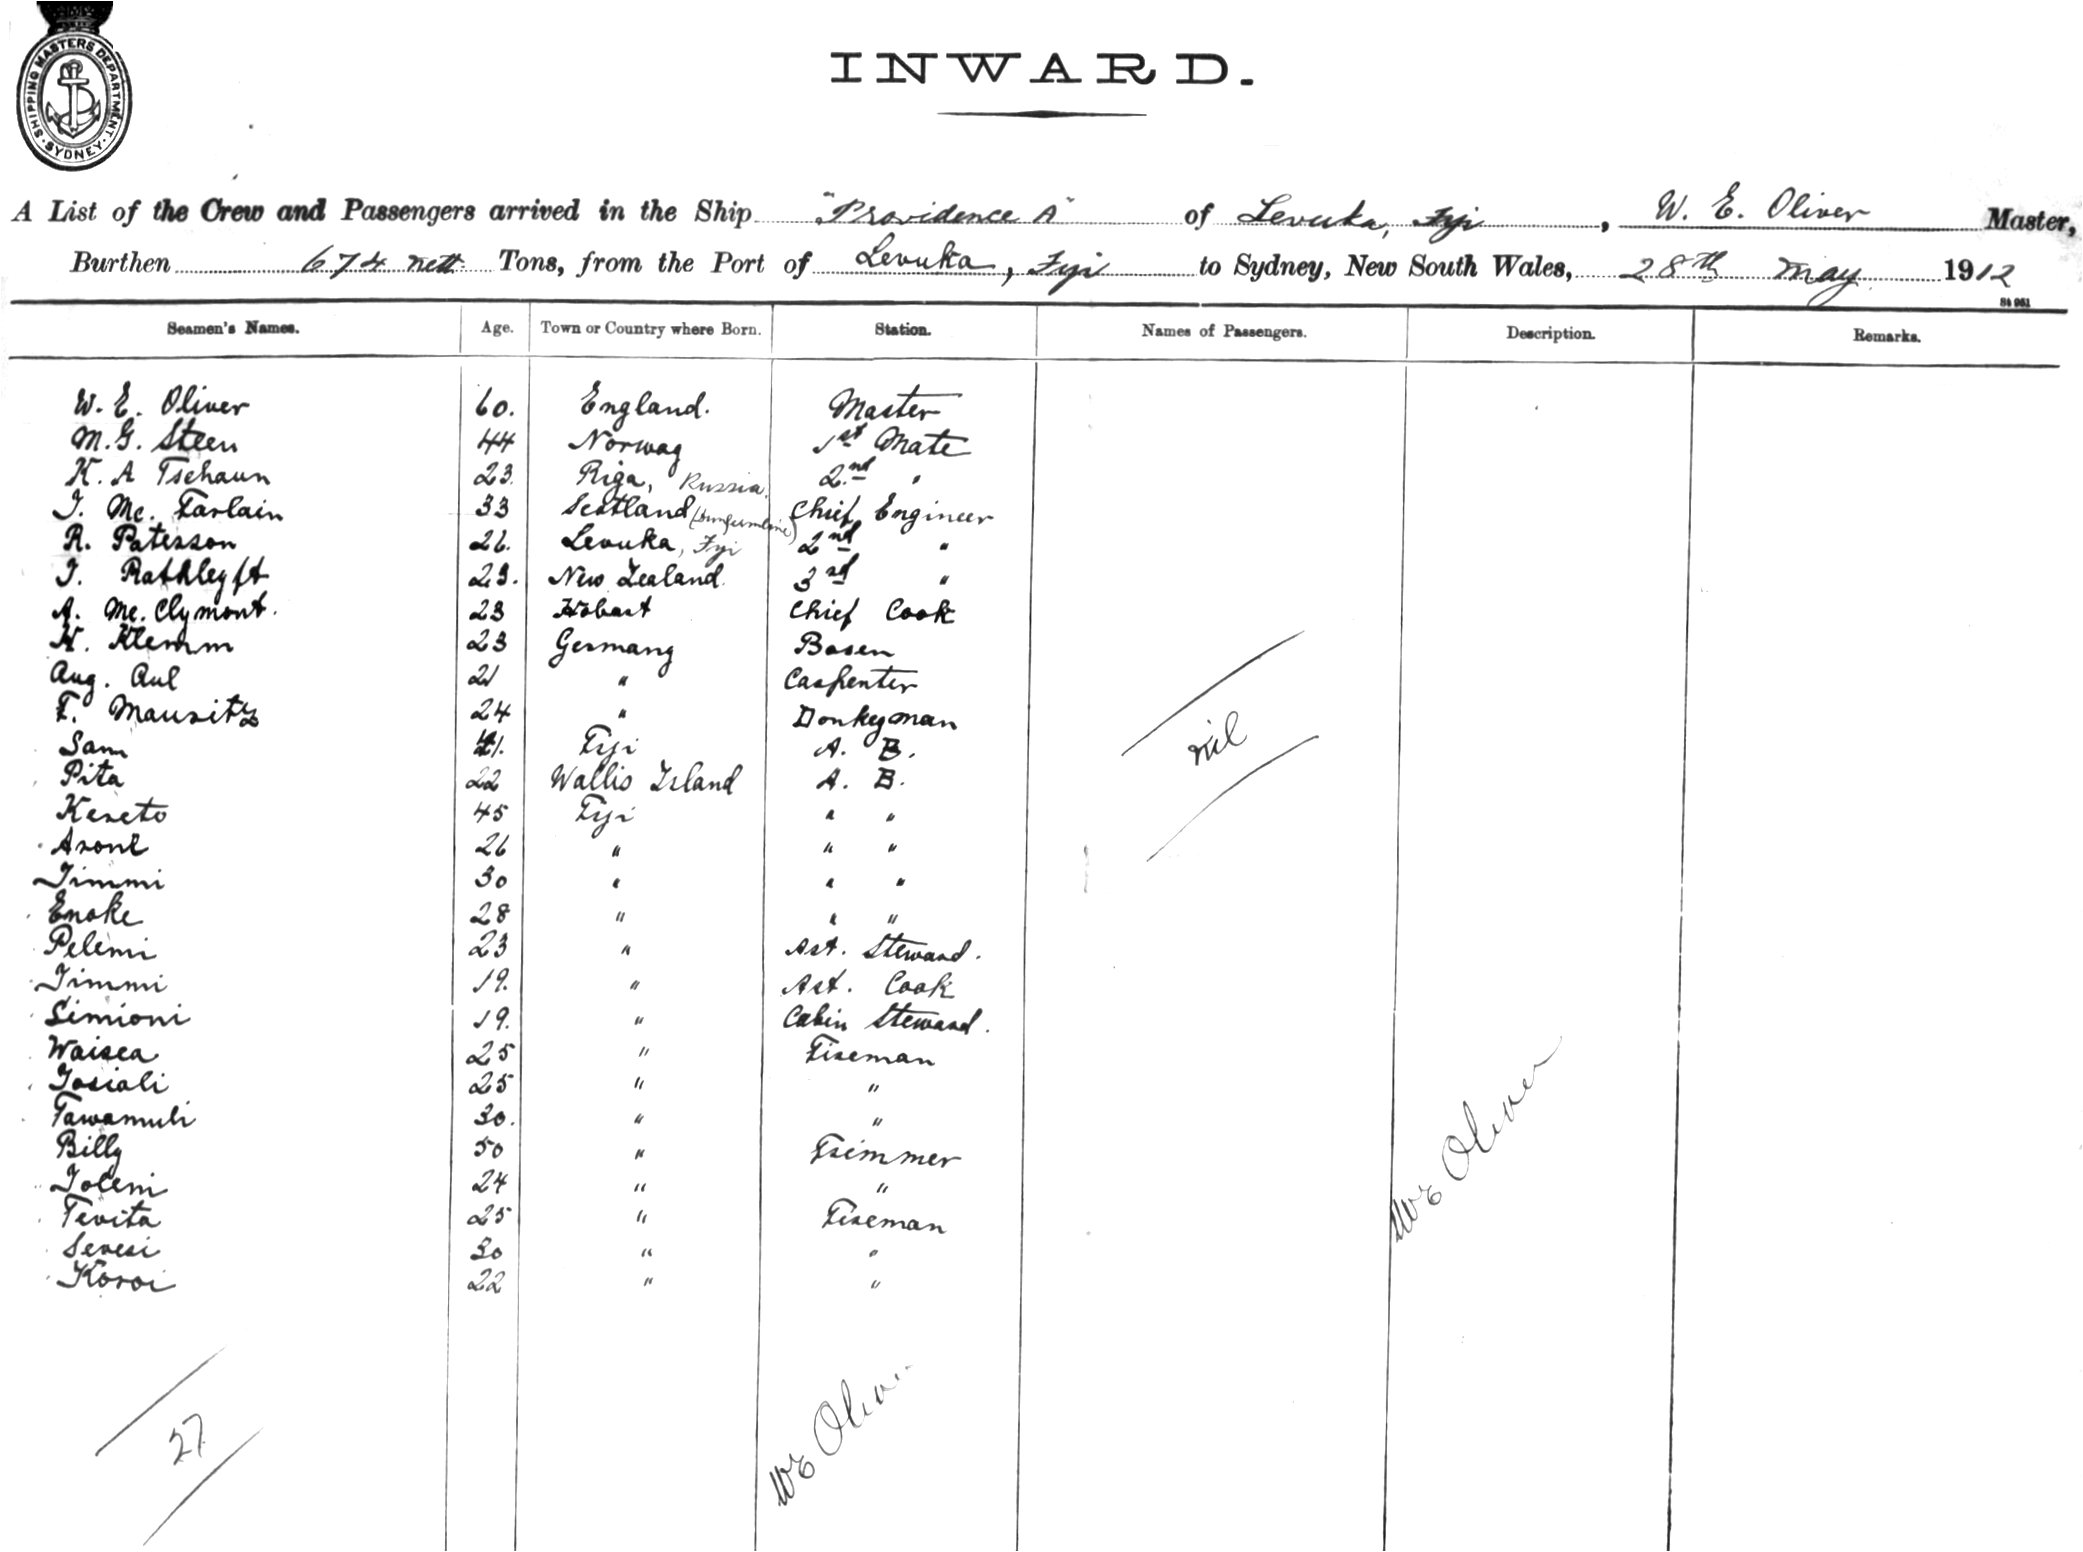 SHIPPING MASTERS DEPARTMENT · SYDNEY ·
INWARD.
A List of the Crew and Passengers arrived in the Ship "Providence A" of Levuka, Fiji, W. E. Oliver Master,
Burthen 674 nett Tons, from the Port of Levuka, Fiji to Sydney, New South Wales, 28th May 1912
St 961
Seamen's Names. Age. Town or Country where Born. Station. Names of Passengers. Description. Remarks.
W. E. Oliver 60. England. Master
M. G. Steen 44 Norway 1st Mate
K. A Tschaun 23. Riga, Russia. 2nd "
J. Mc. Farlain 33 Scotland (Dumfermline) Chief Engineer
R. Patesson 26. Levuka, Fiji 2nd "
J. Rathleyft 23. New Zealand. 3rd "
A. Mc. Clymont. 23 Hobart Chief Cook
H. Klemm 23 Germany Bosen
Aug. Aul 21 " Carpenter
F. Mausitz 24 " Donkeyman
Sam 41. Fiji A. B.
Pita 22 Wallis Island A. B.
Kereto 45 Fiji " "
Arone 26 " " "
Jimmi 30 " " "
Enoke 28 " " "
Pelemi 23 " Ast. Steward.
Jimmi 19. " Ast. Cook
Simioni 19. " Cabin Steward.
Waisea 25 " Fireman
Josiali 25 " "
Tawamuli 30. " "
Billy 50 " Trimmer
Joleni 24 " "
Tevita 25 " Fireman
Seresi 30 " "
Koroi 22 " "
nil
WE Oliver
27
WE Oliver